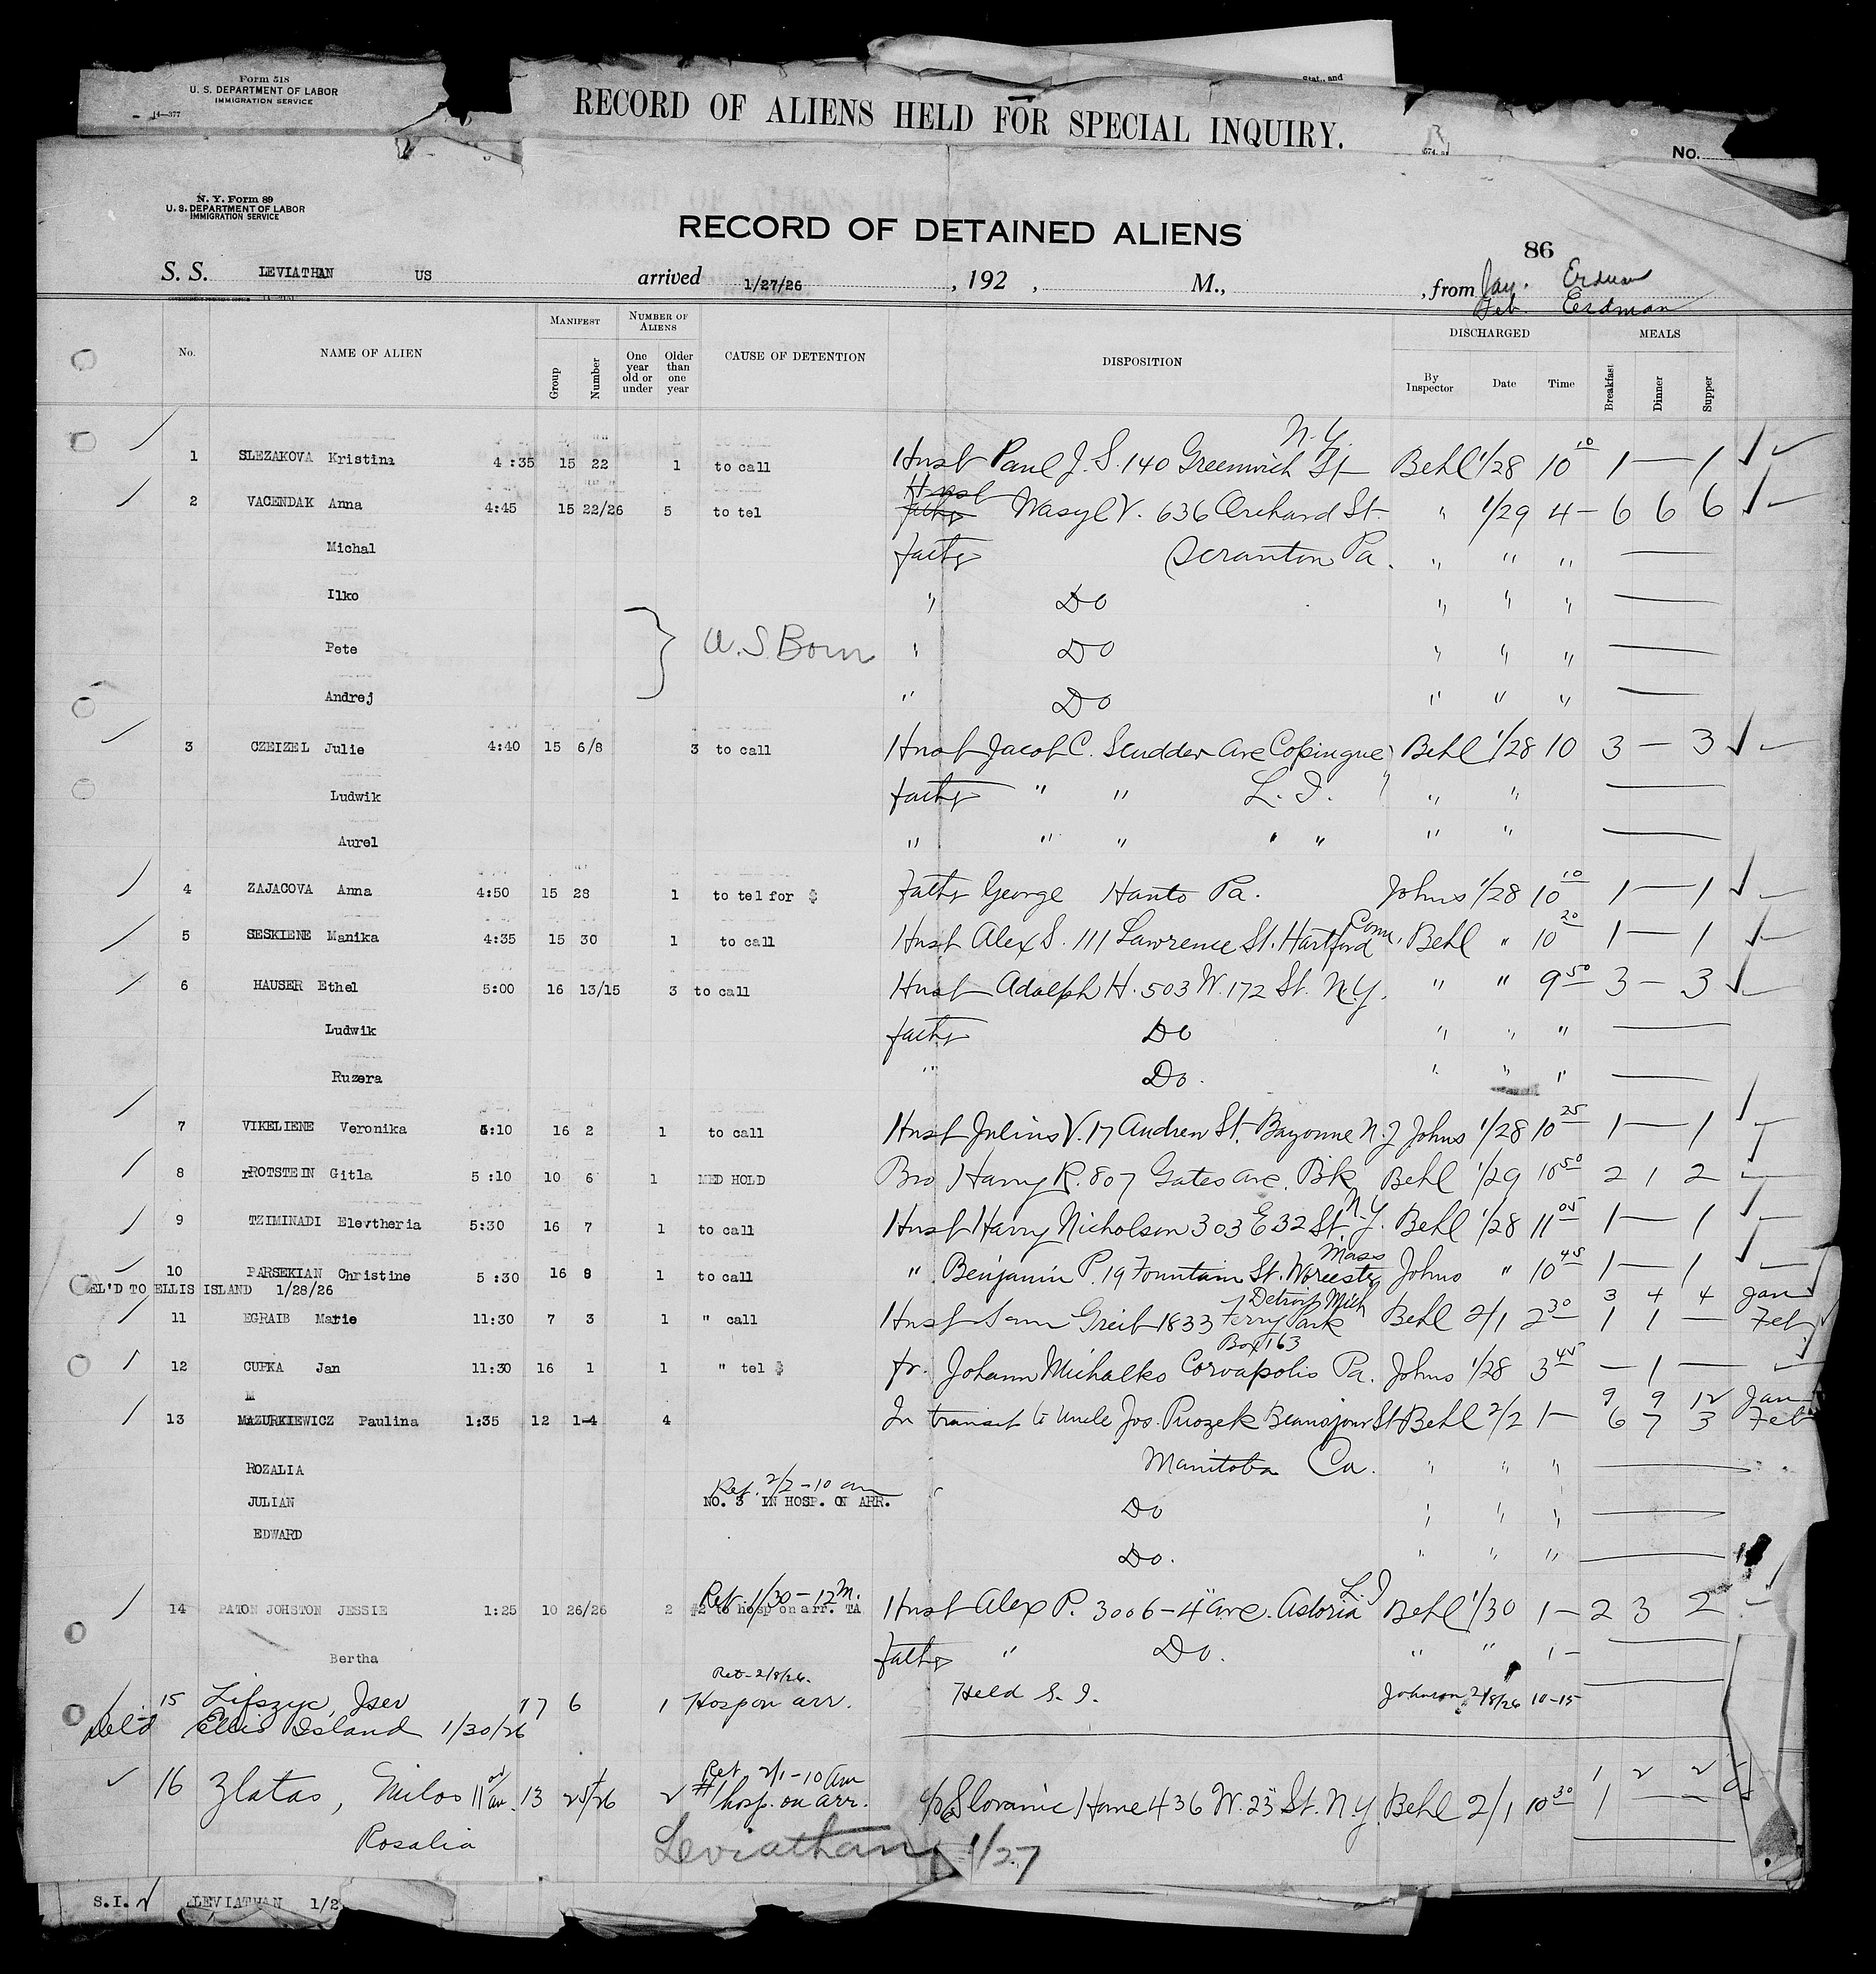 Form 518
U. S. DEPARTMENT OF LABOR
IMMIGRATION SERVICE
14—377
Stat., and
RECORD OF ALIENS HELD FOR SPECIAL INQUIRY.
No.
N. Y. Form 89
U. S. DEPARTMENT OF LABOR
IMMIGRATION SERVICE
RECORD OF DETAINED ALIENS
86
S. S. LEVIATHAN US arrived 1/27/26, 192 , M., , from Jan. Erdman
Feb. Erdman
No. NAME OF ALIEN MANIFEST Group Number NUMBER OF ALIENS One year old or under Older than one year CAUSE OF DETENTION DISPOSITION DISCHARGED By Inspector Date Time MEALS Breakfast Dinner Supper
1 SLEZAKOVA Kristina 4:35 15 22 1 to call Husb Paul J. S. 140 Greenwich St N.Y. Behl 1/28 10 10 1 — 1
2 VACENDAK Anna 4:45 15 22/26 5 to tel Husb Wasyl V. 636 Orchard St. " 1/29 4 — 6 6 6
Michal father Scranton Pa. " " "
Ilko " Do " " "
Pete U.S. Born " Do " " "
Andrej " Do " " "
3 CZEIZEL Julie 4:40 15 6/8 3 to call Husb Jacob C. Scudder Ave Copingue Behl 1/28 10 3 — 3
Ludwik father " " L. I. " "
Aurel " " " " " " "
4 ZAJACOVA Anna 4:50 15 28 1 to tel for $ father George Hanto Pa. Johns 1/28 10 10 1 — 1
5 SESKIENE Manika 4:35 15 30 1 to call Husb Alex S. 111 Lawrence St. Hartford Conn. Behl " 10 20 1 — 1
6 HAUSER Ethel 5:00 16 13/15 3 to call Husb Adolph H. 503 W. 172 St. N.Y. " " 9 50 3 — 3
Ludwik father Do " " "
Ruzera " Do. " " "
7 VIKELIENE Veronika 5:10 16 2 1 to call Husb Julius V. 17 Andrew St. Bayonne N.J Johns 1/28 10 25 1 — 1
8 ROTSTEIN Gitla 5:10 10 6 1 MED HOLD Bro Harry R. 807 Gates Ave. Bk Behl 1/29 10 50 2 1 2
9 TZIMINADI Elevtheria 5:30 16 7 1 to call Husb Harry Nicholson 303 E 32 St N.Y. Behl 1/28 11 05 1 — 1
10 PARSEKIAN Christine 5:30 16 8 1 to call " Benjamin P. 19 Fountain St. Worcester Mass Johns " 10 45 1 — 1
DEL'D TO ELLIS ISLAND 1/28/26 3 4 4 Jan
11 EGRAIB Marie 11:30 7 3 1 " call Husb Sam Greib 1833 Ferry Park Detroit Mich Behl 2/1 2 30 1 1 — Feb
12 CUPKA Jan 11:30 16 1 1 " tel $ fr. Johann Michalko Box 163 Coroapolis Pa. Johns 1/28 3 45 — 1 —
M 9 9 12 Jan
13 MAZURKIEWICZ Paulina 1:35 12 1-4 4 In transit to Uncle Jos. Beausejour St Behl 2/2 1 — 6 7 3 Feb
ROZALIA Manitoba Ca. " " "
Ret. 2/2 - 10 am
JULIAN NO. 3 IN HOSP. ON ARR. Do " " "
EDWARD Do. " " "
Ret 1/30 - 12 M.
14 PATON JOHSTON JESSIE 1:25 10 26/26 2 #2 to hosp on arr. TA Husb Alex P. 3006 - 4" Ave. Astoria L. I Behl 1/30 1 — 2 3 2
Bertha father " Do. " " 1 —
Ret - 2/8/26.
15 Lifszyc, Jsev 17 6 1 Hosp on arr. Held S. I. Johnson 2/8/26 10-15
Deld Ellis Island 1/30/26
Ret 2/1 - 10 am 1 2 2
16 Zlatas, Milos 11 am. 13 25/26 2 #1 hosp. on arr. c/o Slovanic Home 436 W. 23" St. N.Y. Behl 2/1 10 30 1 — —
Rosalia
Leviathan 1/27
S.I. LEVIATHAN 1/2